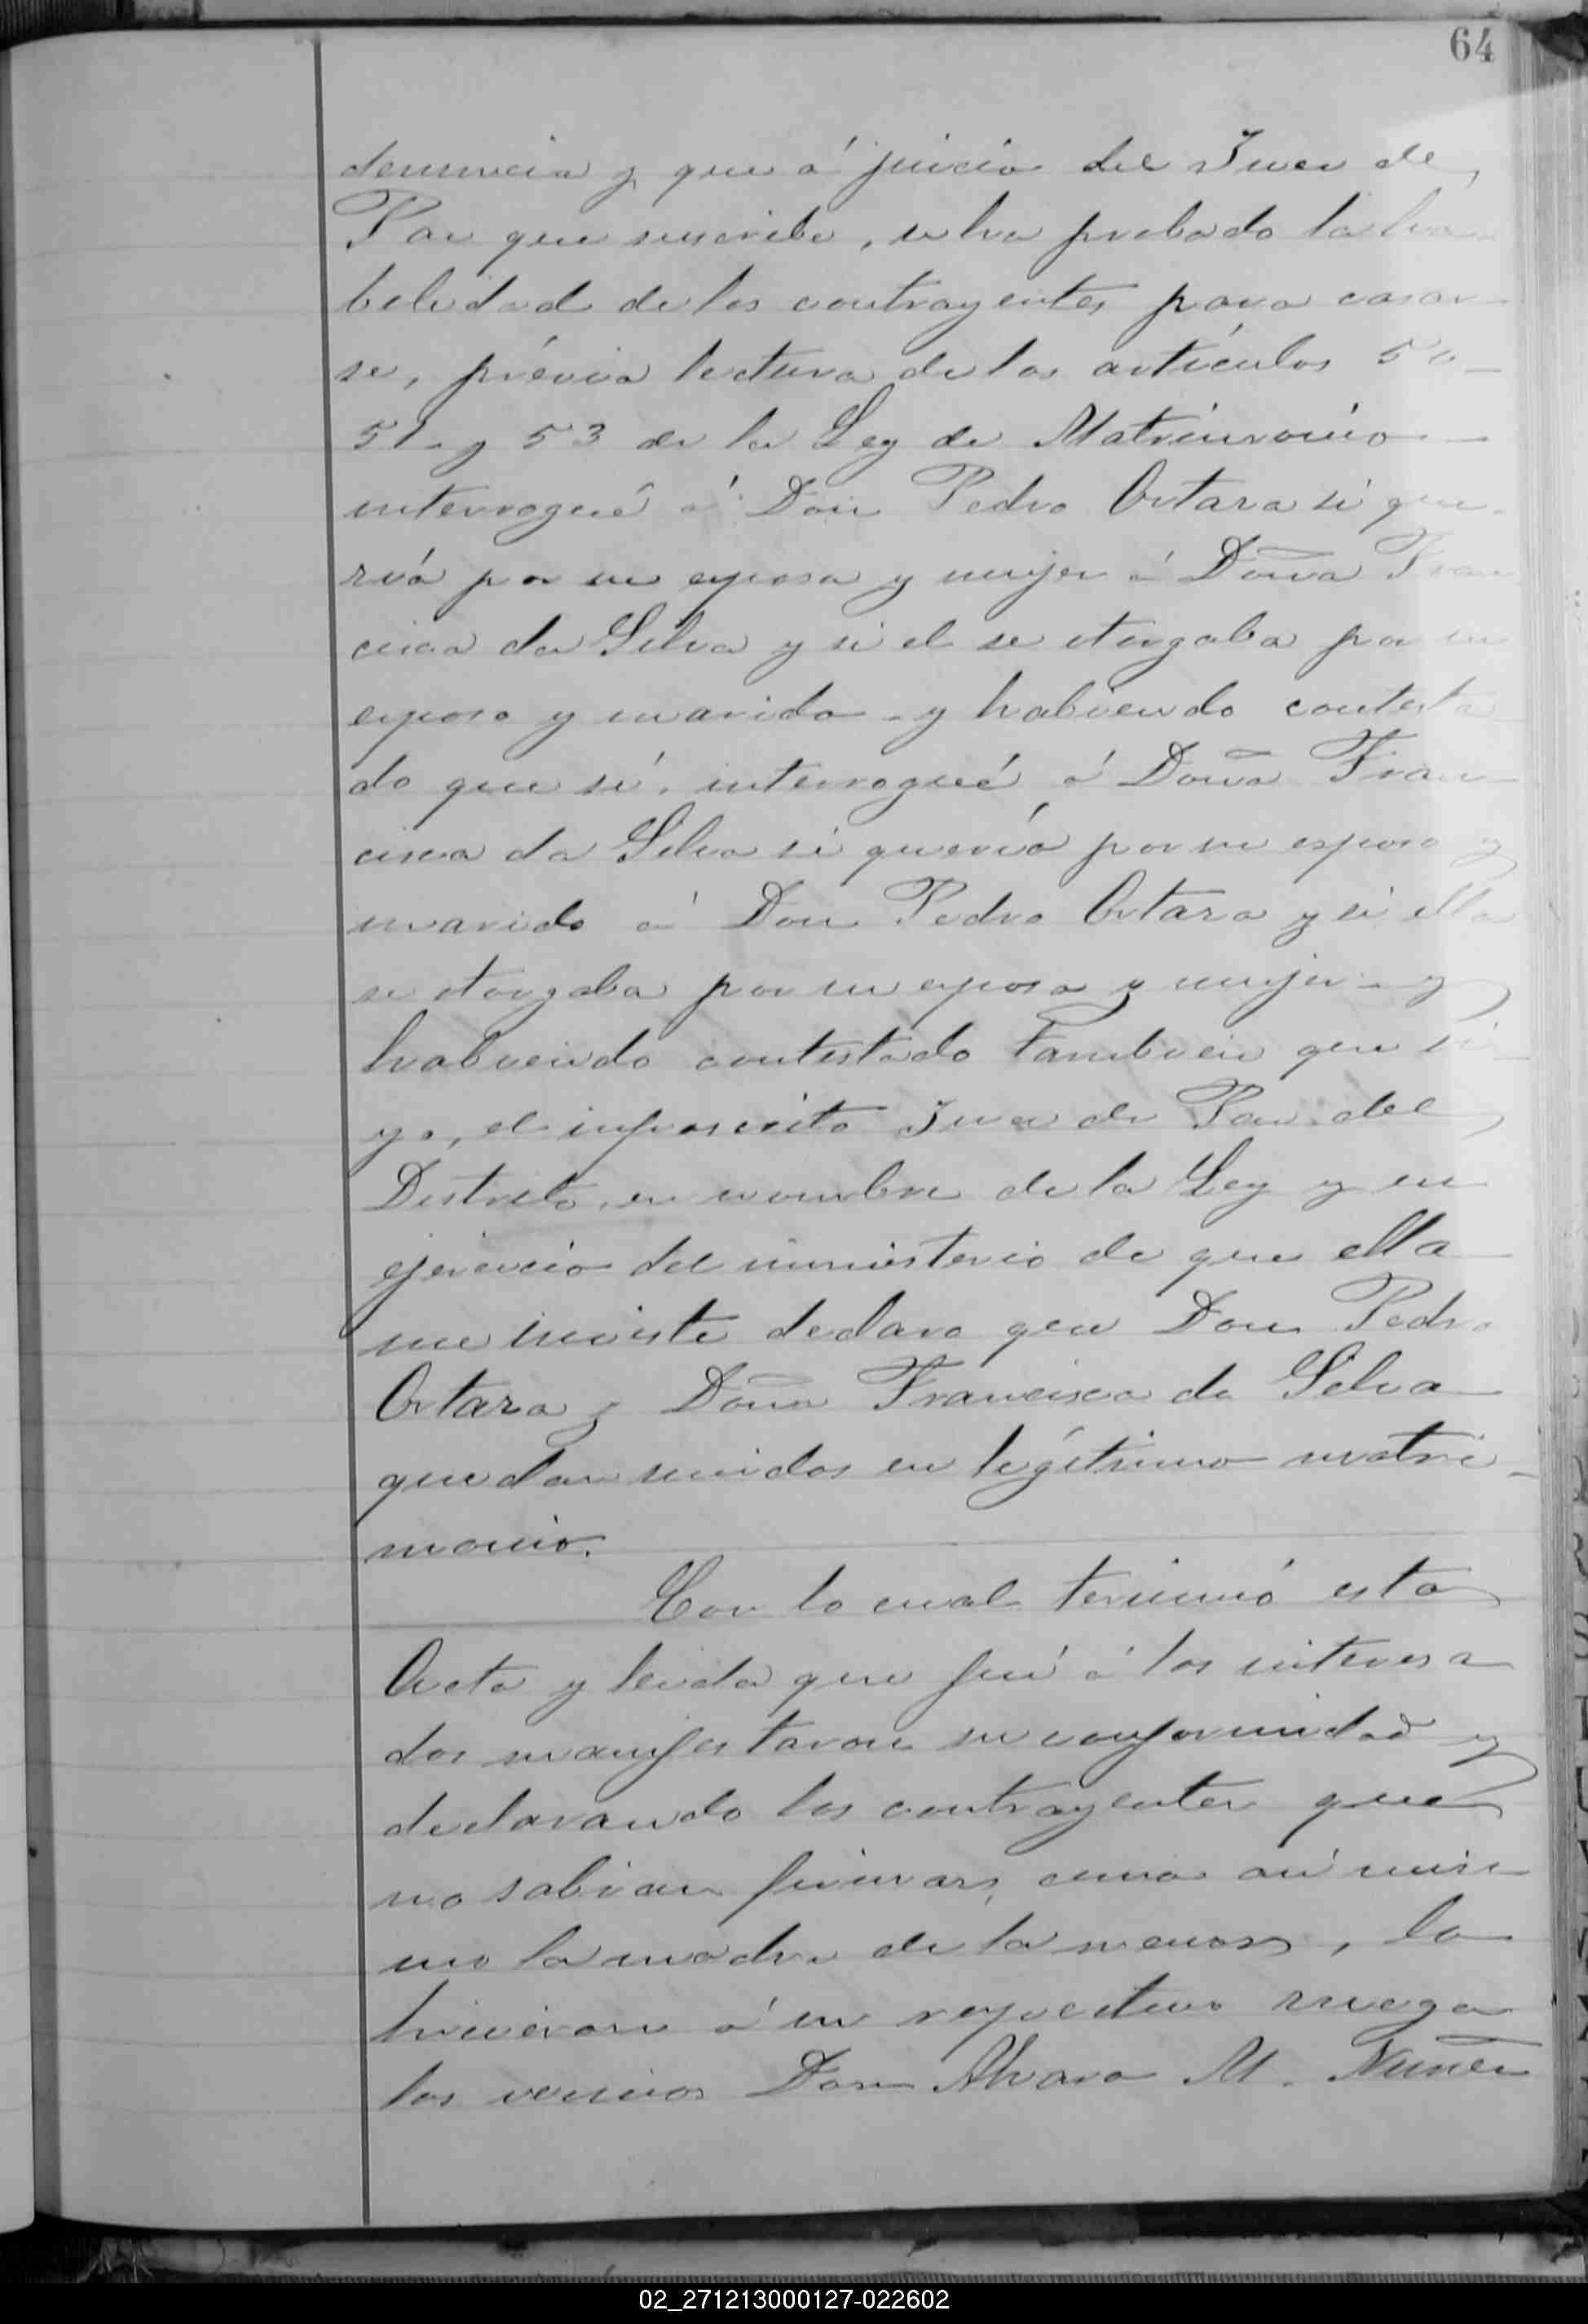 64
denuncia y que á juicio del Juez de
Paz que suscribe, se ha probado la ha-
bilidad de los contrayentes para casar-
se, prévia lectura de los artículos 50-
51- y 53 de la Ley de Matrimonio-
interrogué á Don Pedro Artaza si que-
ría por su esposa y mujer á Doña Fran
cisca da Silva y si el se otorgaba por su
esposo y marido - y habiendo contesta
do que sí, interrogué á Doña Fran-
cisca da Silva si quería por su esposo y
marido á Don Pedro Artaza y si ella
se otorgaba por su esposa y mujer - y
habiendo contestado tambien que sí-
yo, el infrascrito Juez de Paz del
Distrito, en nombre de la Ley y en
ejercicio del ministerio de que ella
me inviste declaro que Don Pedro
Artaza y Doña Francisca da Silva
quedan unidos en legítimo matri-
monio.
Con lo cual terminó esta
Acta y leida que fué á los interesa
dos manifestaron su conformidad y
declarando los contrayentes que
no sabian firmar, como así mis-
mo la madre de la menor, lo
hicieron á su respectivo ruego
los vecinos Don Alvaro M. Nuñez
02_271213000127-022602